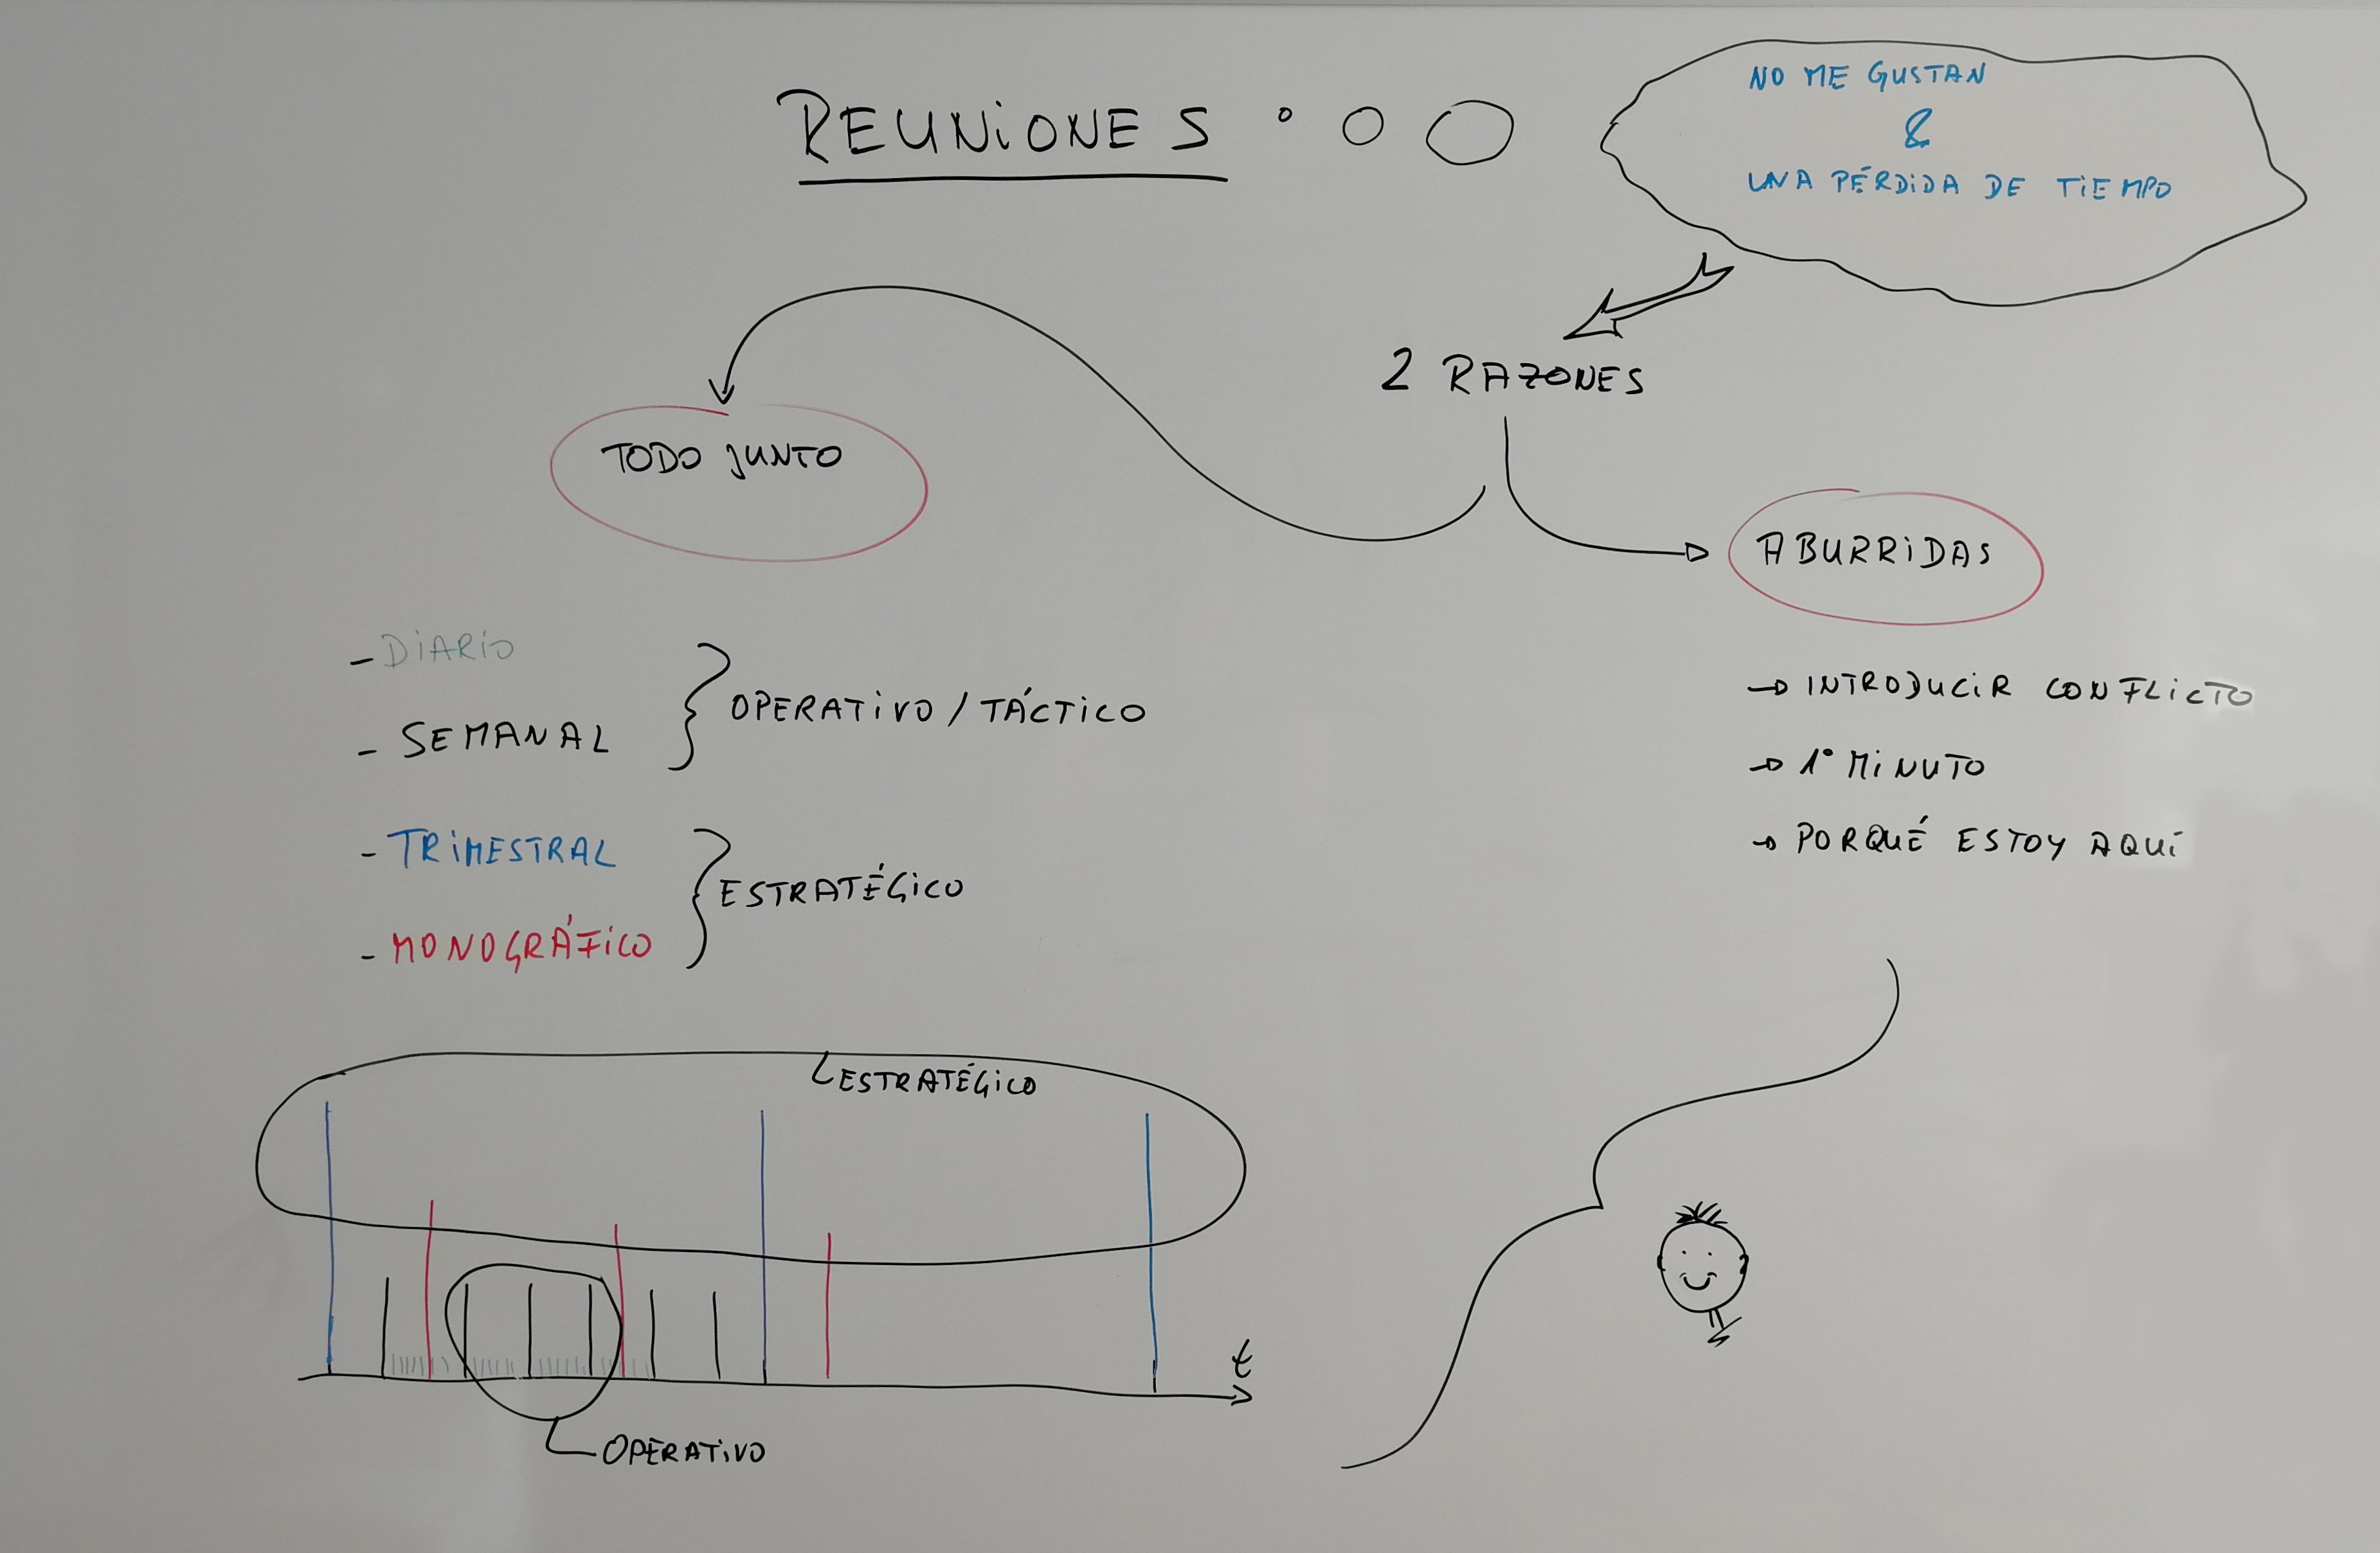 REUNIONES
NO ME GUSTAN
&
UNA PÉRDIDA DE TIEMPO
2 RAZONES
TODO JUNTO
ABURRIDAS
- DIARIO
- SEMANAL
OPERATIVO / TÁCTICO
- TRIMESTRAL
- MONOGRÁFICO
ESTRATÉGICO
→ INTRODUCIR CONFLICTO
→ 1º MINUTO
→ PORQUÉ ESTOY AQUÍ
ESTRATÉGICO
t
OPERATIVO